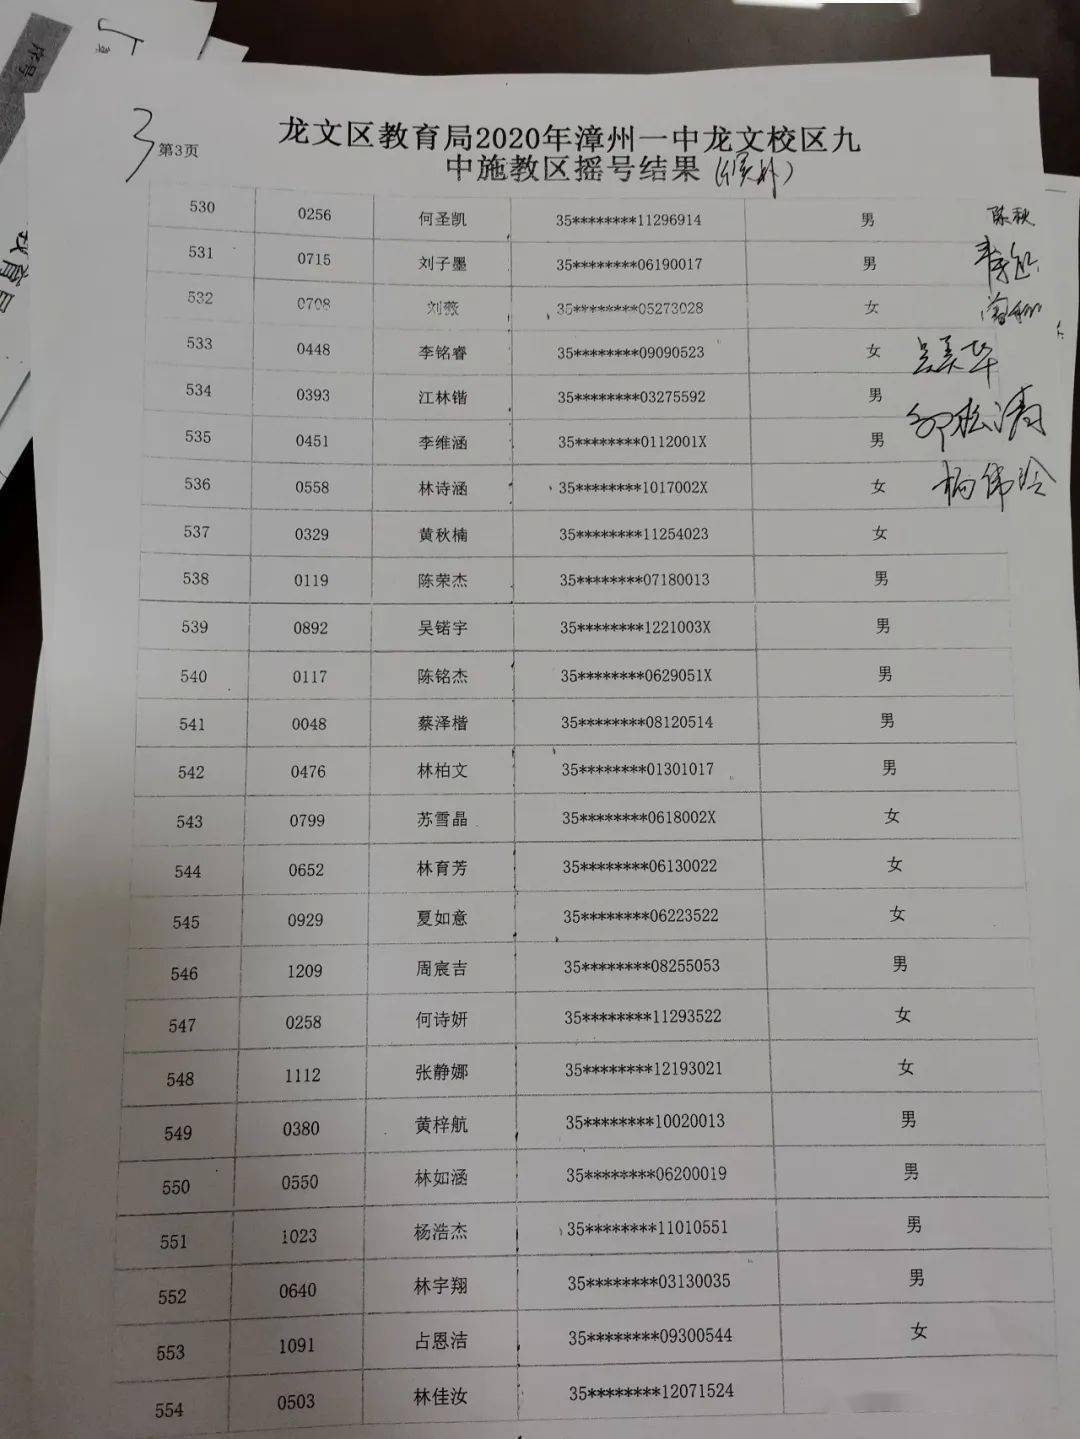 序号
3
第3页
龙文区教育局2020年漳州一中龙文校区九
中施教区摇号结果(候补)
530 0256 何圣凯 35********11296914 男
陈秋
531 0715 刘子墨 35********06190017 男
532 0708 刘薇 35********05273028 女
533 0448 李铭睿 35********09090523 女
吴美华
534 0393 江林锴 35********03275592 男
535 0451 李维涵 35********0112001X 男
536 0558 林诗涵 35********1017002X 女
杨伟玲
537 0329 黄秋楠 35********11254023 女
538 0119 陈荣杰 35********07180013 男
539 0892 吴锘宇 35********1221003X 男
540 0117 陈铭杰 35********0629051X 男
541 0048 蔡泽楷 35********08120514 男
542 0476 林柏文 35********01301017 男
543 0799 苏雪晶 35********0618002X 女
544 0652 林育芳 35********06130022 女
545 0929 夏如意 35********06223522 女
546 1209 周宸吉 35********08255053 男
547 0258 何诗妍 35********11293522 女
548 1112 张静娜 35********12193021 女
549 0380 黄梓航 35********10020013 男
550 0550 林如涵 35********06200019 男
551 1023 杨浩杰 35********11010551 男
552 0640 林宇翔 35********03130035 男
553 1091 占恩洁 35********09300544 女
554 0503 林佳汝 35********12071524